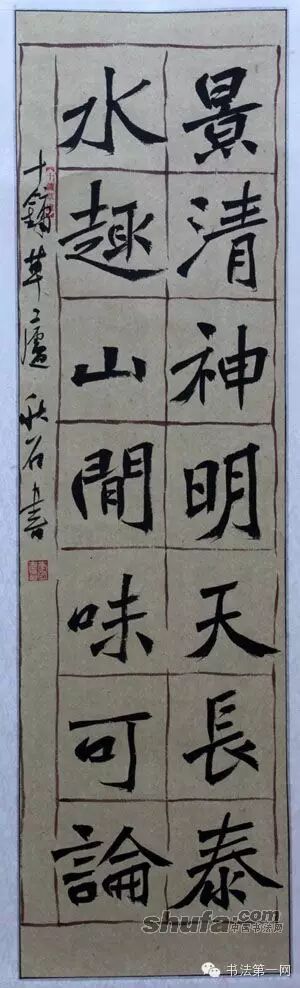 景清神明天長泰
水趣山間味可論
秋石書
shufa.com
中国书法网
书法第一网